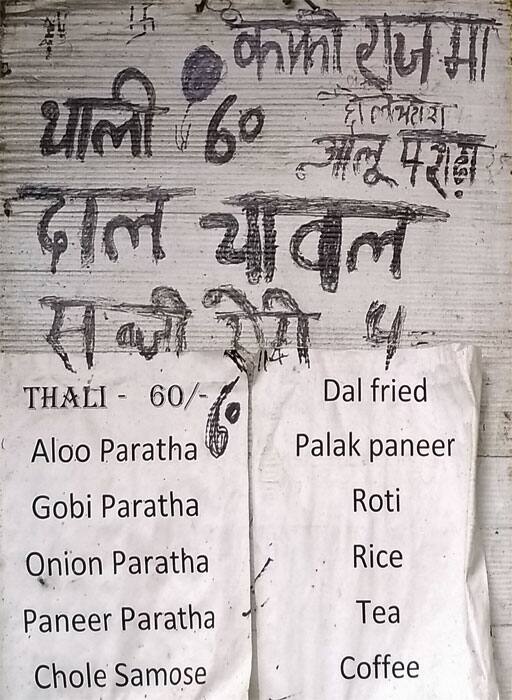 राजमा
थाली 60
आलू
दाल चावल
सब्जी रोटी
THALI - 60/-
60
Aloo Paratha
Gobi Paratha
Onion Paratha
Paneer Paratha
Chole Samose
Dal fried
Palak paneer
Roti
Rice
Tea
Coffee